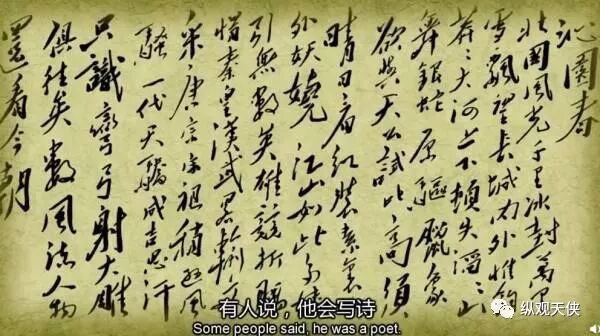 沁園春
北國風光千里冰封萬里
雪飄望長城內外惟餘
莽々大河上下頓失滔々山
舞銀蛇原驅臘象
欲與天公試比高須
晴日看紅裝素裹
外妖嬈江山如此多嬌
引無數英雄競折腰
惜秦皇漢武略輸文
采唐宗宋祖稍遜風
騷一代天驕成吉思汗
只識彎弓射大雕
俱往矣數風流人物
還看今朝
有人说，他会写诗
Some people said, he was a poet.
纵观天侠